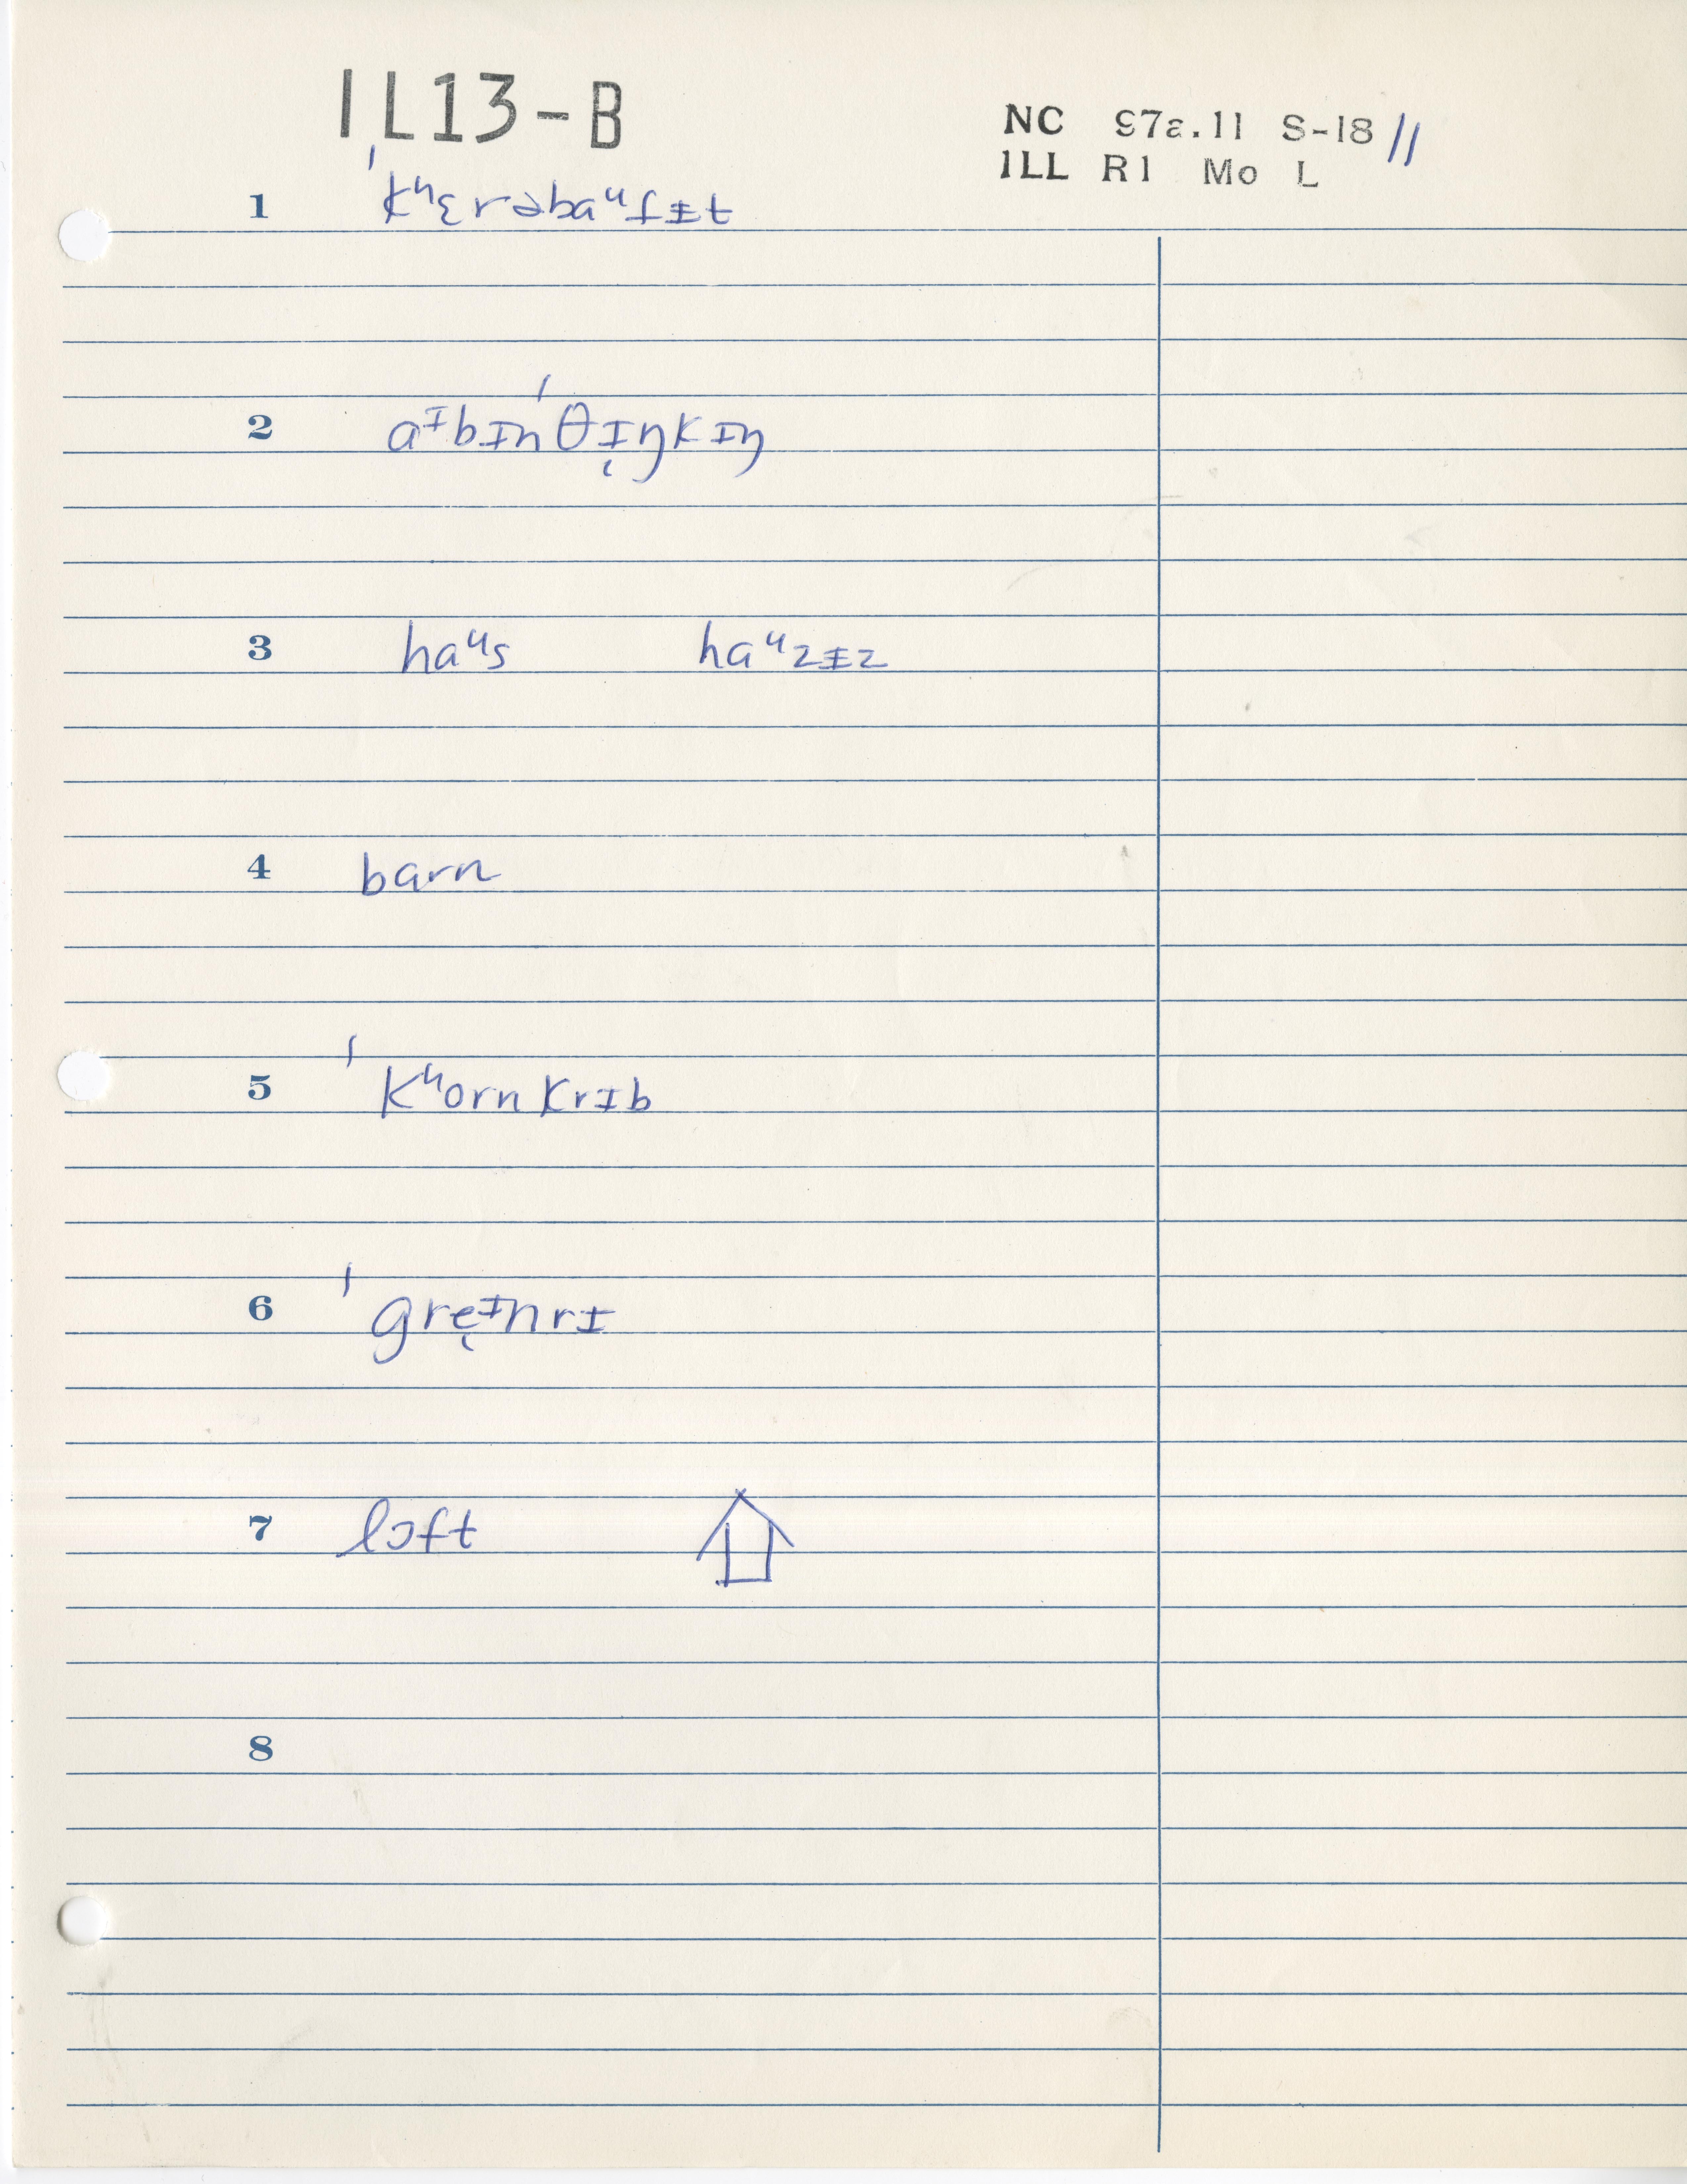 IL13-B
NC 97a.11 S-18 11
ILL R1 Mo L
1 ˈkʰɛrəbaᵘfɨt
2 aᶦbɪnˈθɪ̨ŋkɪŋ
3 haᵘs haᵘzɨz
4 barn
5 ˈkʰornkrɪb
6 ˈgrę ᶦnrɪ
7 lɔft
8